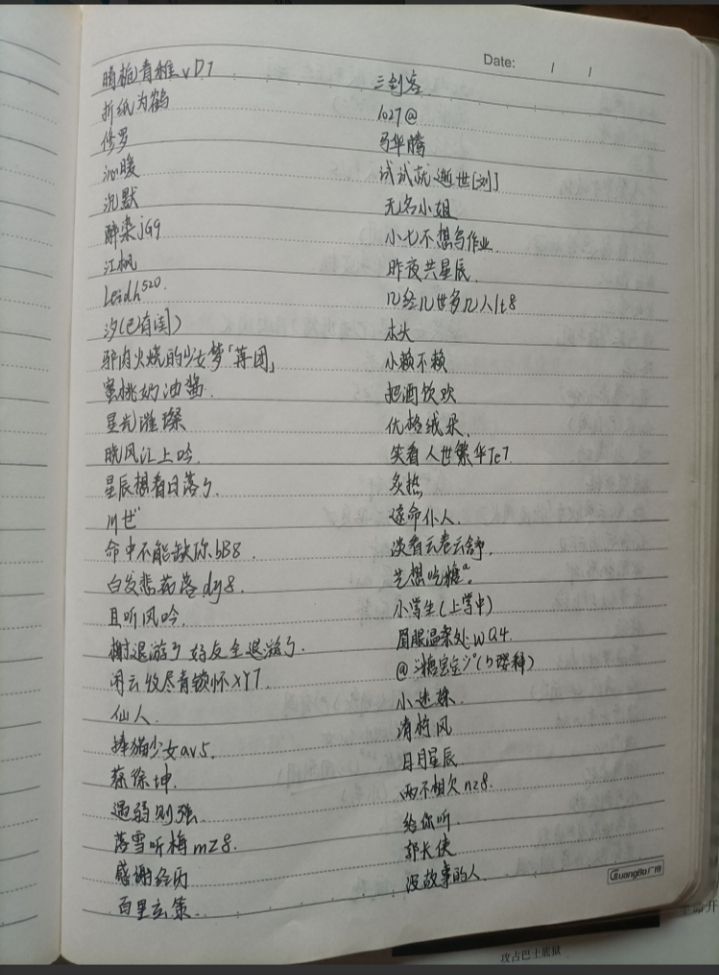 Date: / /
晴栀青稚vD7
折纸为鹤
修罗
沁暖
沉默
醉染jG9
江枫
Leidh520
汐(已有闺)
驴肉火烧的少女梦「苒团」
蜜桃奶油酱
星光璀璨
晚风江上吟.
星辰想看日落了.
川世
命中不能缺你bB8.
白发悲花落dy8.
且听风吟.
榭退游了好友全退游了.
闲云收尽青锁怀XY7.
仙人.
捧猫少女av5.
蔡徐坤.
遇弱则强.
落雪听梅mZ8.
感谢经历
百里玄策.
三剑客
1027@
马华腾
试试就逝世[刘]
无名小姐
小七不想写作业.
昨夜共星辰.
几经几世多几人lt8
木头
小赖不赖
把酒饮欢
优格绒朵.
笑看人世繁华Je7.
炙热
逆命仆人.
淡看云卷云舒.
芝想吃糖a.
小学生(上学中)
眉眼温柔处wQ4.
小迷妹.
清梅风
日月星辰.
两不相欠nz8.
给你听.
郭长侠
没故事的人.
Guangbo广博
攻占巴士底狱